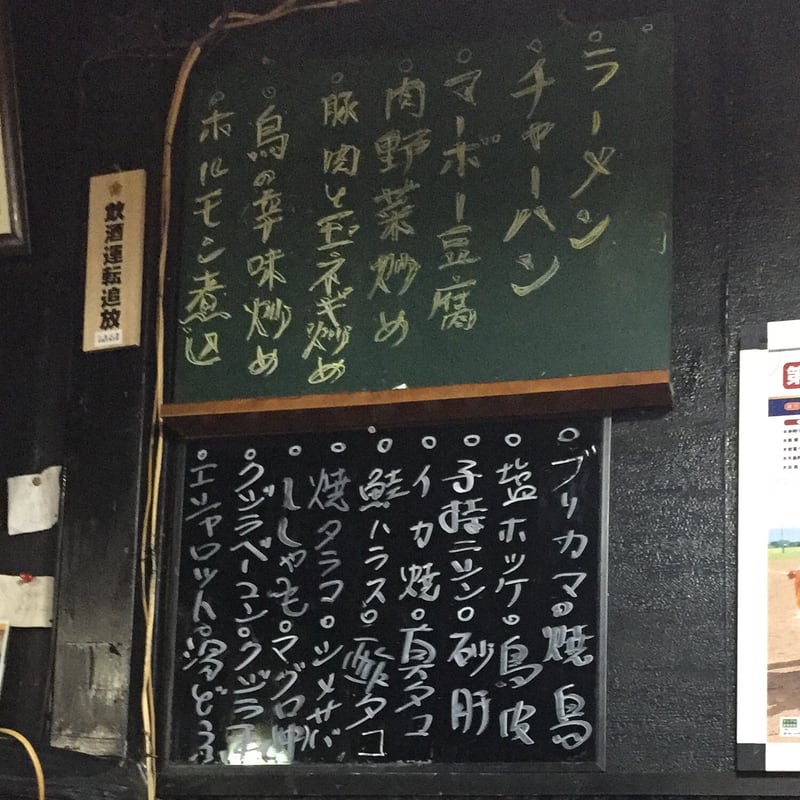 ラーメン
チャーハン
マーボー豆腐
肉野菜炒め
豚肉と玉ネギ炒め
鳥の辛味炒め
ホルモン煮込
飲酒運転追放
ブリカマ。焼鳥
塩ホッケ。鳥皮
子持ニシン。砂肝
イカ焼。真タコ
鮭ハラス。酢タコ
焼タラコ。シメサバ
ししゃも。マグロ
クジラベーコン。クジラ
エシャロット。湯どうふ
第